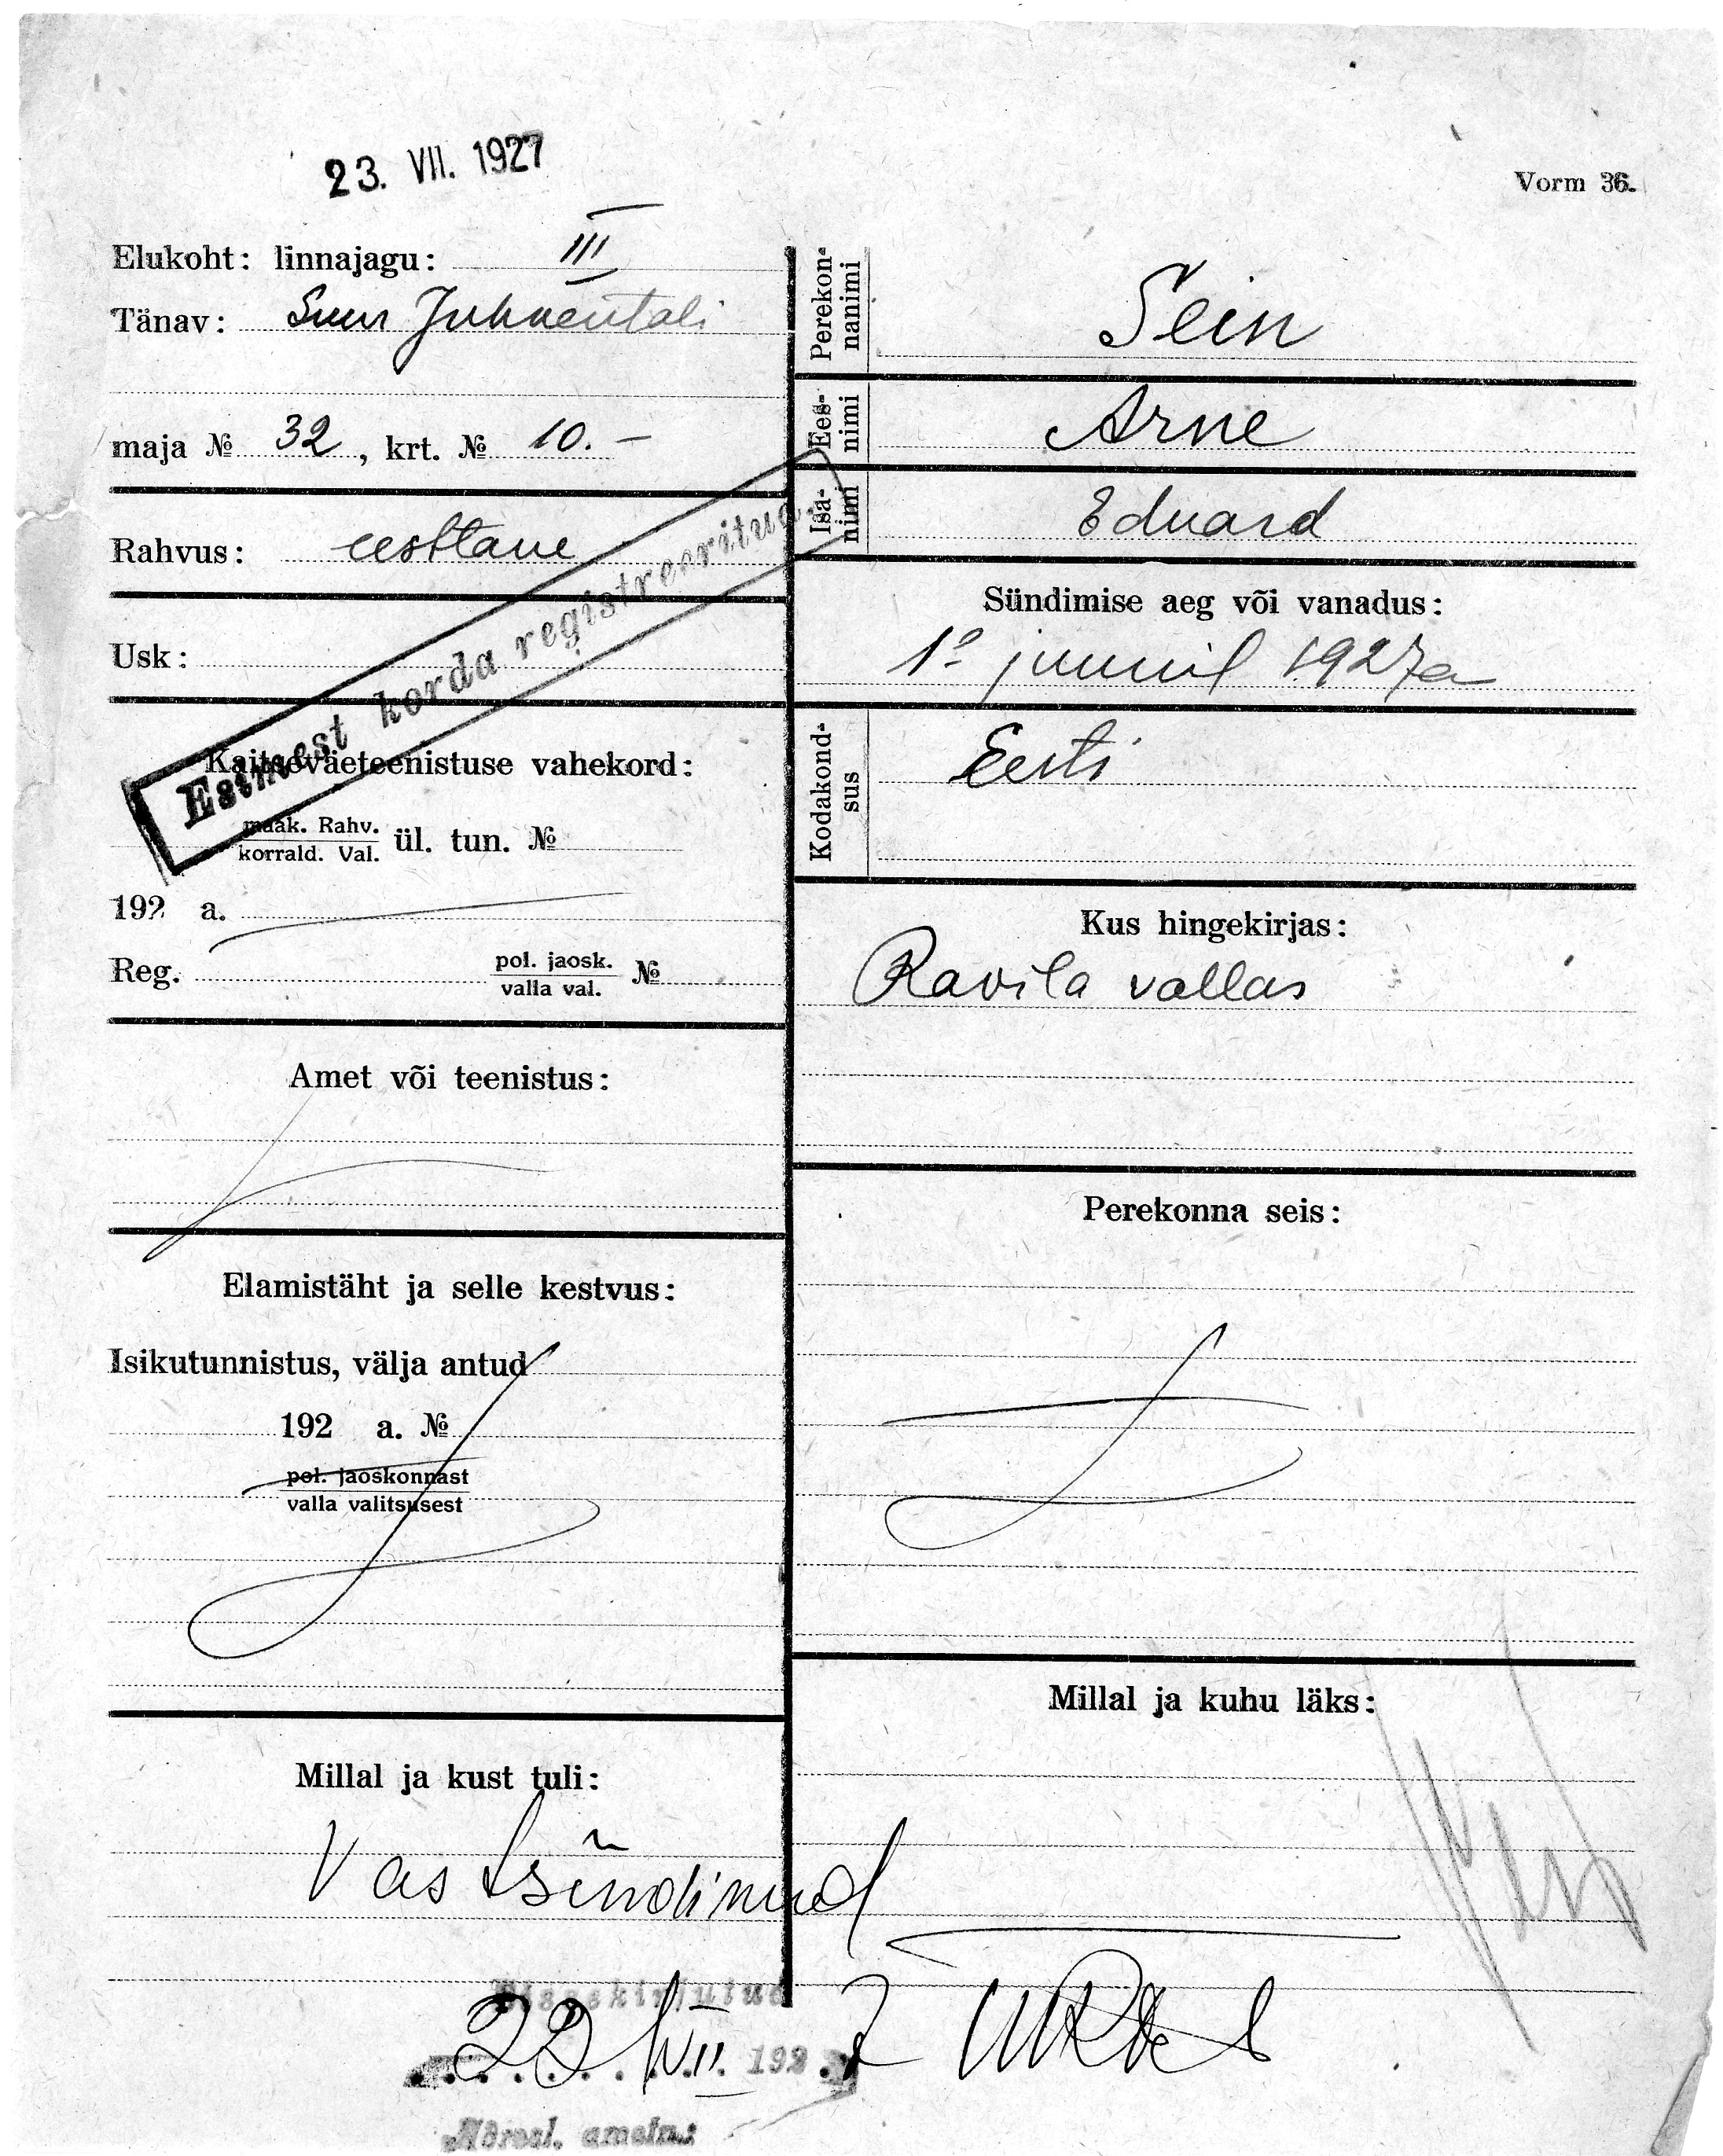 23. VII. 1927
Vorm 36.
Elukoht: linnajagu: III
Tänav: Suur Juhkentali
maja № 32, krt. № 10. —
Rahvus: eestlane
Usk:
Esimest korda registreeritud.
Kaitseväeteenistuse vahekord:
maak. Rahv.
korrald. Val. ül. tun. №
192 a.
Reg. pol. jaosk. №
valla val.
Amet või teenistus:
Elamistäht ja selle kestvus:
Isikutunnistus, välja antud
192 a. №
pol. jaoskonnast
valla valitsusest
Millal ja kust tuli:
Vastsündinud
Perekon-
nanimi
Sein
Ees-
nimi
Arne
Isa-
nimi
Eduard
Sündimise aeg või vanadus:
1º juunil 1927a
Kodakond-
sus
Eesti
Kus hingekirjas:
Ravila vallas
Perekonna seis:
Millal ja kuhu läks:
Sissekirjutud
22 VII 192 7